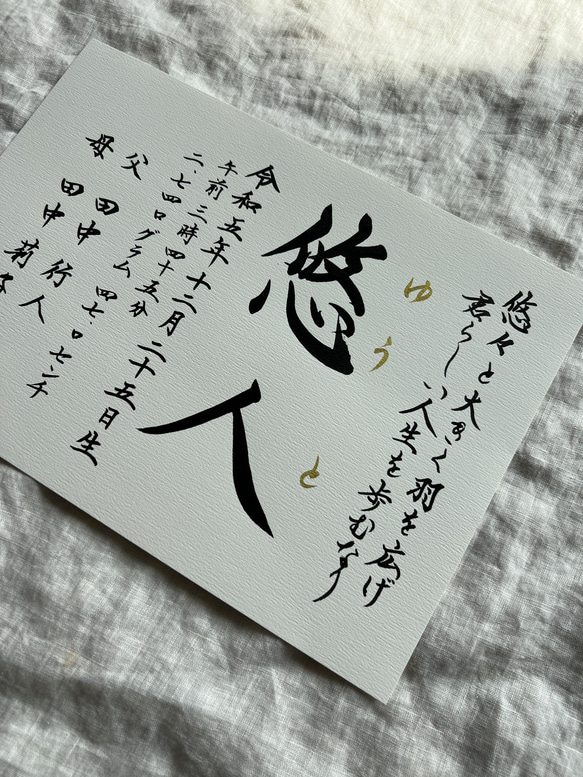 悠々と大きく羽を広げ
君らしい人生を歩むなり
ゆうと
悠人
令和五年十二月二十五日生
午前三時四十五分
二.七四ログラム 四七.ロセンチ
父 田中行人
母 田中莉